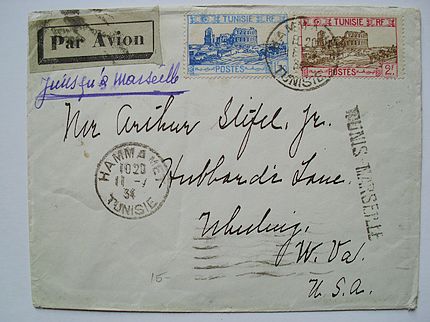 Par Avion
TUNISIE RF
POSTES
TUNISIE RF
POSTES 2F
Jusqu'à Marseille
HAMMAMET
1020
TUNISIE
HAMMAMET
1020
11 -
34
TUNISIE
TUNIS MARSEILLE
Mr Arthur Stifel, Jr.
Hubbard's Lane.
Wheeling.
W. Va.
U.S.A.
15-